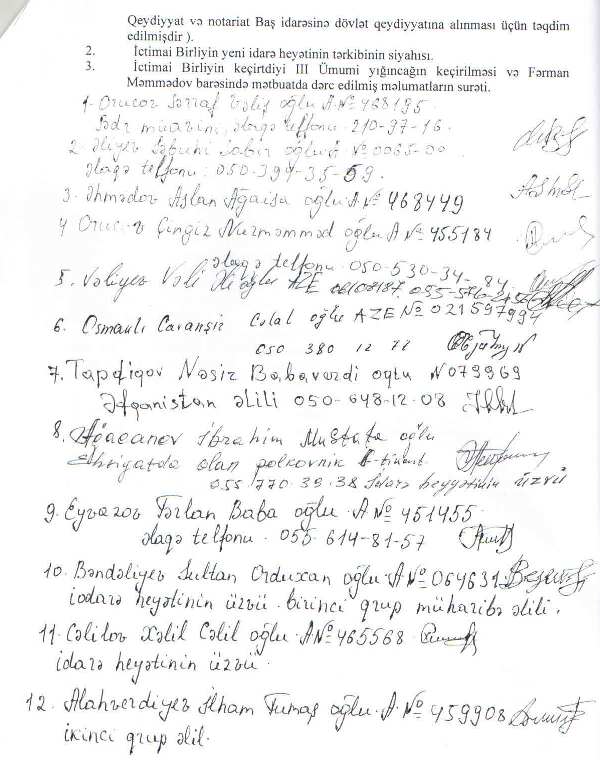 Qeydiyyat və notariat Baş idarəsinə dövlət qeydiyyatına alınması üçün təqdim
edilmişdir ).
2. İctimai Birliyin yeni idarə heyətinin tərkibinin siyahısı.
3. İctimai Birliyin keçirtdiyi III Ümumi yığıncağın keçirilməsi və Fərman
Məmmədov barəsində mətbuatda dərc edilmiş məlumatların surəti.
1. Orucov Sərraf oğlu A № 468195
Sədr müavini, əlaqə telfonu 210-97-16.
2. Əliyev Sabir oğlu
əlaqə telfonu: 050-394-35-59.
3. Əhmədov Aslan Ağaisa oğlu A № 468449
4 Orucov Çingiz Nurməmməd oğlu A № 455184
əlaqə telfonu 050-530-34-84
5. Vəliyev Vəli AZE
6. Osmanlı Cavanşir Cəlal oğlu AZE № 021597994
050 380 12 72
7. Tapdıqov Nəsir Babaverdi oğlu N 079969
Əfqanistan əlili 050-648-12-08
8. Ağacanov İbrahim Mustafa oğlu
Ehtiyatda olan polkovnik
055 770 39 38 İdarə heyyətinin üzvü
9. Eyvazov Tərlan Baba oğlu. A № 451455
əlaqə telfonu. 055-614-81-57
10. Bəndəliyev Sultan Orduxan oğlu A № 064631
iodarə heyətinin üzvü. birinci qrup müharibə əlili.
11. Cəlilov Xəlil Cəlil oğlu. A № 465568
idarə heyətinin üzvü.
12. Alahverdiyev İlham Tumaş oğlu. A. № 459908
ikinci qrup əlil.